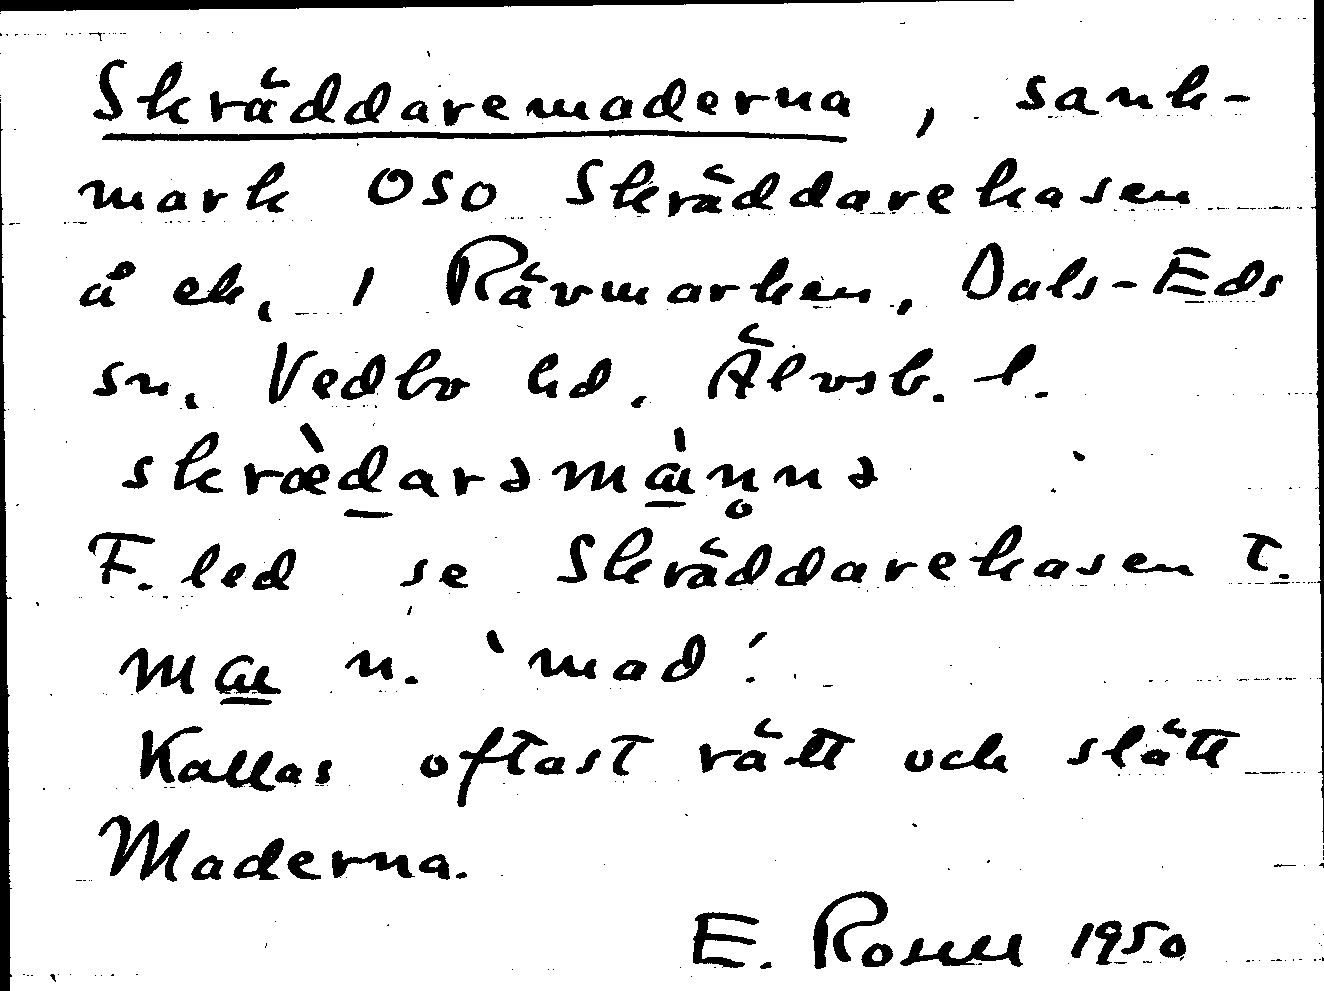 Skräddaremaderna, sank-
mark OSO Skräddarekasen
å ek. 1 Rävmarken, Dals-Eds
sn, Vedbo hd, Älvsb. l.
skræ̀darəmæ̀n̥nə
F. led se Skräddarekasen T.
mæ n. 'mad'.
Kallas oftast rätt och slätt
Maderna.
E. Rosell 1950